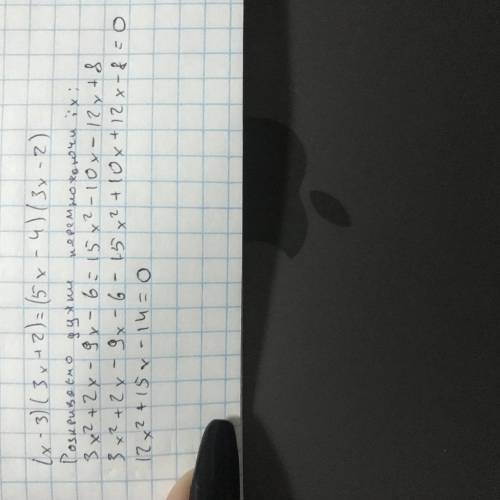 (x-3)(3x+2)=(5x-4)(3x-2)
Розкриваємо дужки перемножаючи їх:
3x²+2x-9x-6=15x²-10x-12x+8
3x²+2x-9x-6-15x²+10x+12x-8=0
12x²+15x-14=0